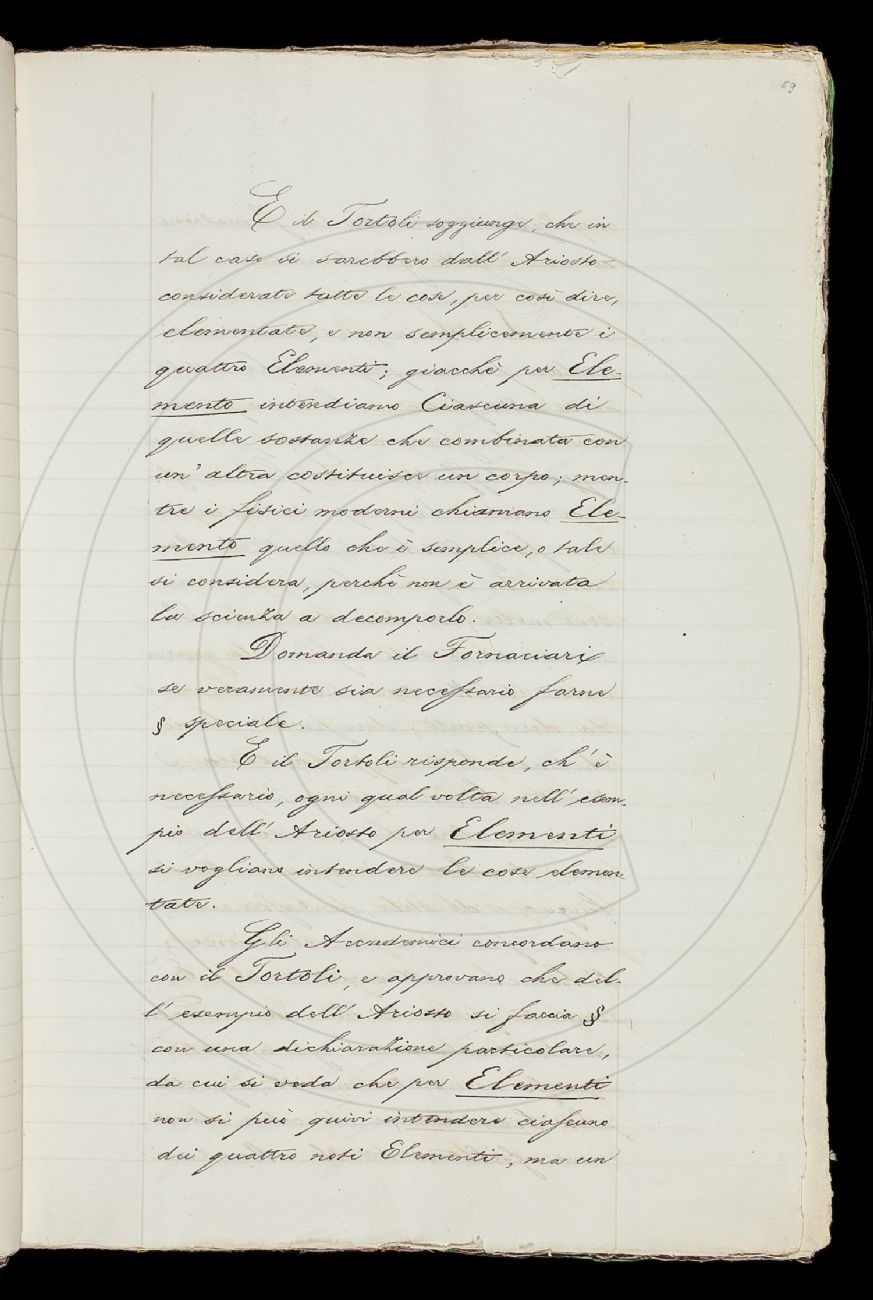 69
E il Tortoli soggiunge, che in
tal caso si sarebbero dall' Ariosto
considerate tutte le cose, per così dire,
elementate, e non semplicemente i
quattro Elementi; giacchè per Ele-
mento intendiamo Ciascuna di
quelle sostanze che combinata con
un' altra costituisce un corpo; men-
tre i fisici moderni chiamano Ele-
mento quello che è semplice, o tale
si considera, perchè non è arrivata
la scienza a decomporlo.
Domanda il Fornaciari
se veramente sia necessario farne
§ speciale.
E il Tortoli risponde, ch' è
necessario, ogni qual volta nell' esem-
pio dell' Ariosto per Elementi
si vogliano intendere le cose elemen-
tate.
Gli Accademici concordano
con il Tortoli, e approvano che del-
l' esempio dell' Ariosto si faccia §
con una dichiarazione particolare,
da cui si veda che per Elementi
non si può quivi intendere ciascuno
dei quattro noti Elementi, ma un